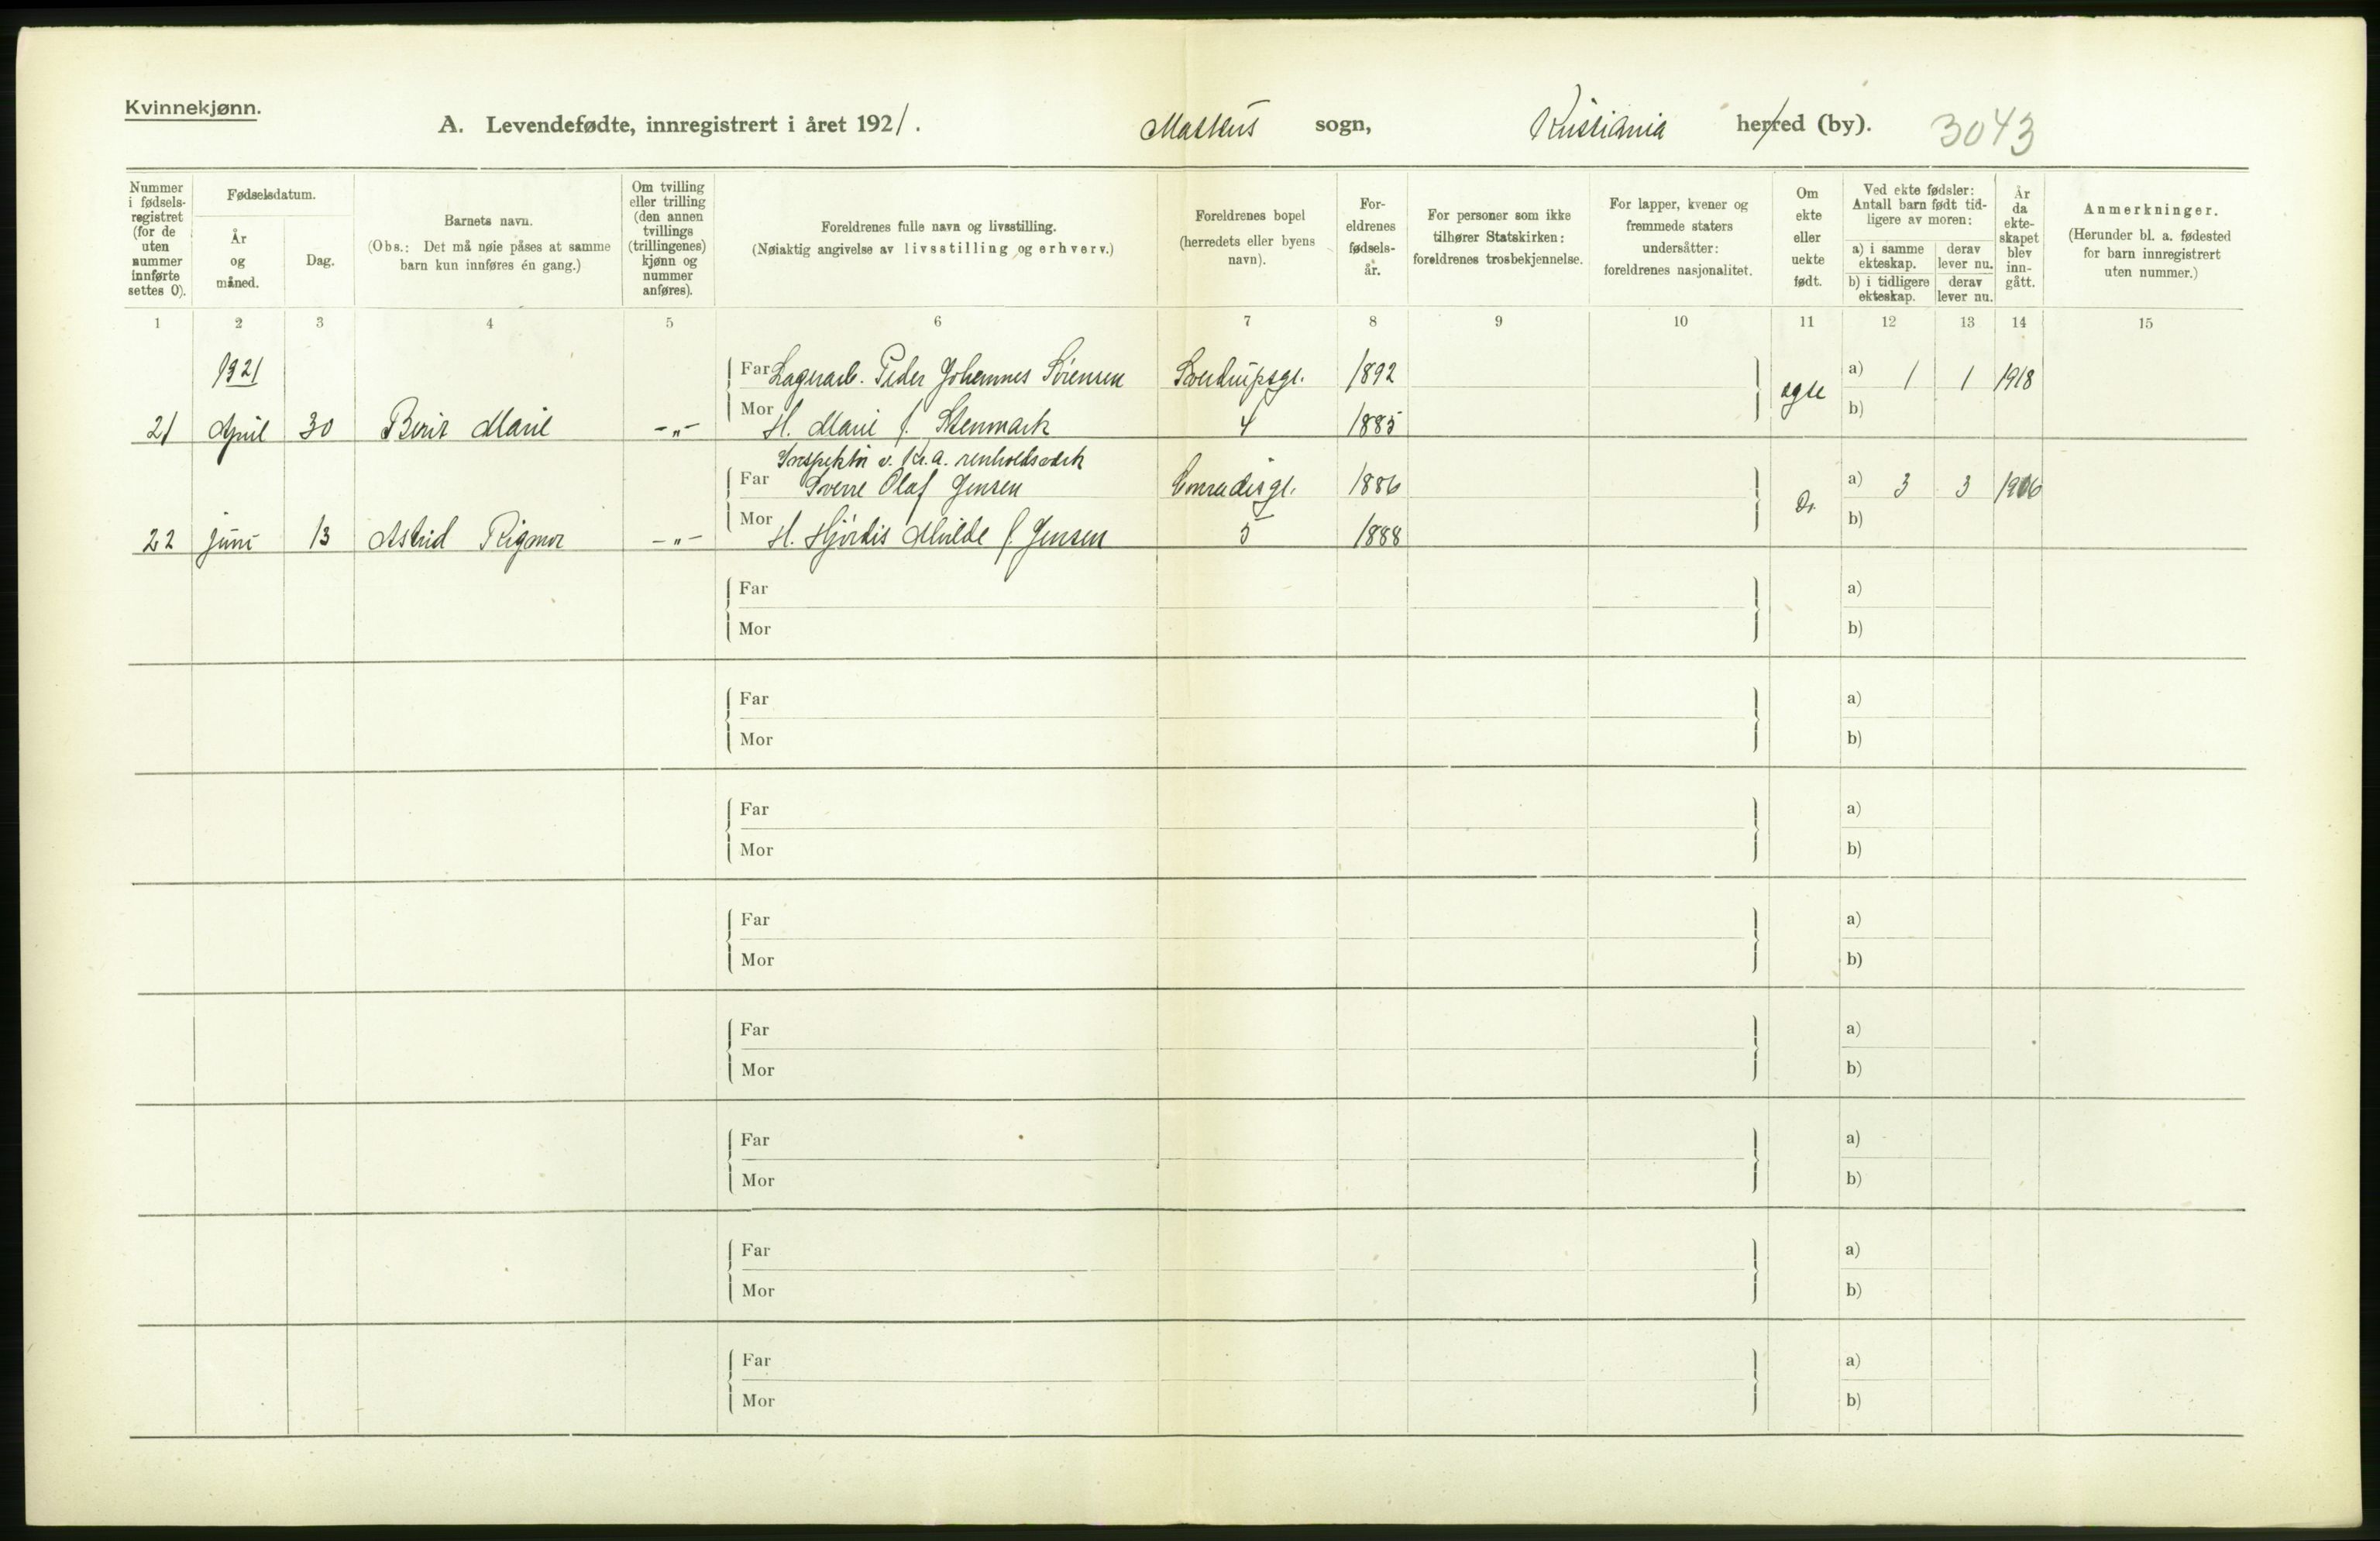 Kvinnekjønn.
A. Levendefødte, innregistrert i året 1921. Markus sogn, Kristiania herred (by). 3043
Nummer i fødsels-registret (for de uten nummer innførte settes 0).
Fødselsdatum.
År og måned.
Dag.
Barnets navn.
(Obs.: Det må nøie påses at samme barn kun innføres én gang.)
Om tvilling eller trilling (den annen tvillings (trillingenes) kjønn og nummer anføres).
Foreldrenes fulle navn og livsstilling.
(Nøiaktig angivelse av livsstilling og erhverv.)
Foreldrenes bopel (herredets eller byens navn).
For-eldrenes fødsels-år.
For personer som ikke tilhører Statskirken: foreldrenes trosbekjennelse.
For lapper, kvener og fremmede staters undersåtter: foreldrenes nasjonalitet.
Om ekte eller uekte født.
Ved ekte fødsler: Antall barn født tid-ligere av moren:
a) i samme ekteskap. derav lever nu.
b) i tidligere ekteskap. derav lever nu.
År da ekte-skapet blev inn-gått.
Anmerkninger.
(Herunder bl. a. fødested for barn innregistrert uten nummer.)
1 2 3 4 5 6 7 8 9 10 11 12 13 14 15
1921 Far Lagerarb. Peder Johannes Sørensen Sverdrupsgt. 1892 a) 1 1 1918
21 April 30 Berit Marie -„- Mor H. Marie f. Stenmark 4 1885 egte b)
Inspektør v. Kr.a. renholdsverk
Far Sverre Olaf Jensen Conradisgt. 1886 a) 3 3 1906
22 juni 13 Astrid Rigmor -„- Mor H. Hjördis Alvilde f. Jensen 5 1888 Do. b)
Far a)
Mor b)
Far a)
Mor b)
Far a)
Mor b)
Far a)
Mor b)
Far a)
Mor b)
Far a)
Mor b)
Far a)
Mor b)
Far a)
Mor b)